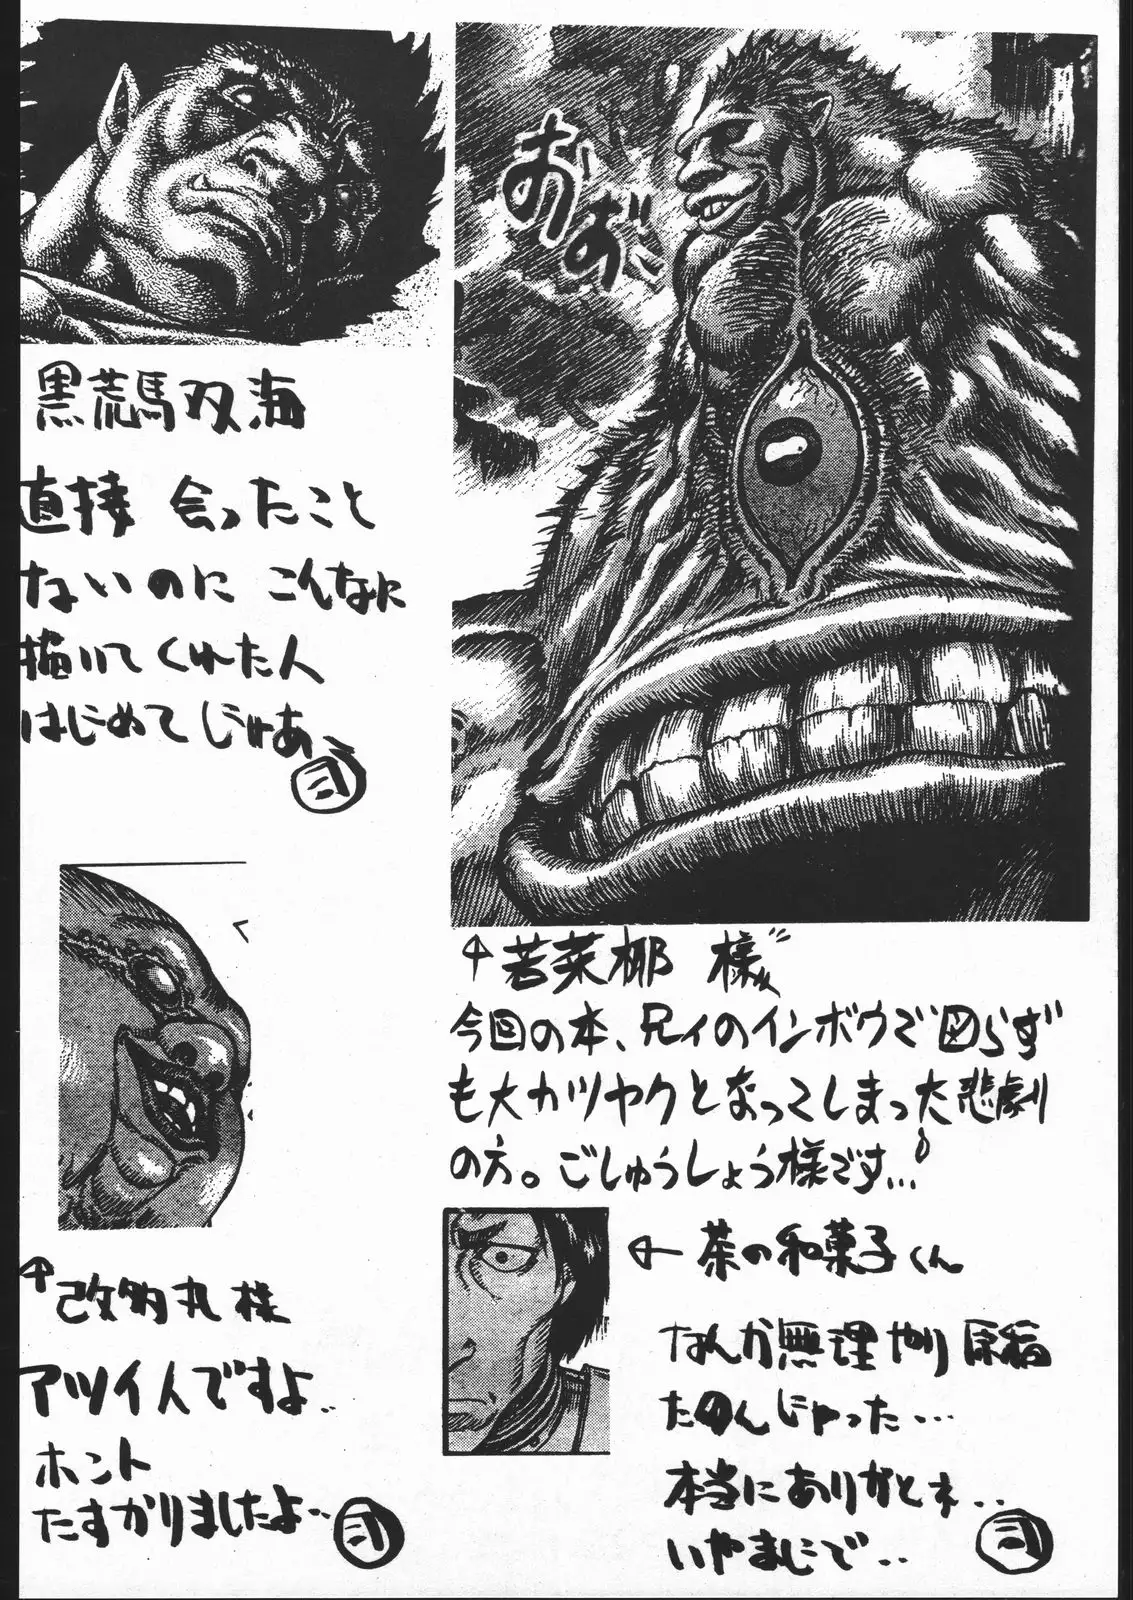 おおお
黒荒馬双海
直接 会ったこと
ないのに こんなに
描いてくれた人
はじめてじゃあ〜
弐
↑若菜椰 様
今回の本、兄ィのインボウで図らず
も大カツヤクとなってしまった悲劇
の方。ごしゅうしょう様です…
←茶の和菓子くん
なんか無理やり原稿
たのんじゃった…
本当にありがとネ..
いやまじで..
弐
↑改的丸様
アツイ人ですよ..
ホント
たすかりましたよ..
弐